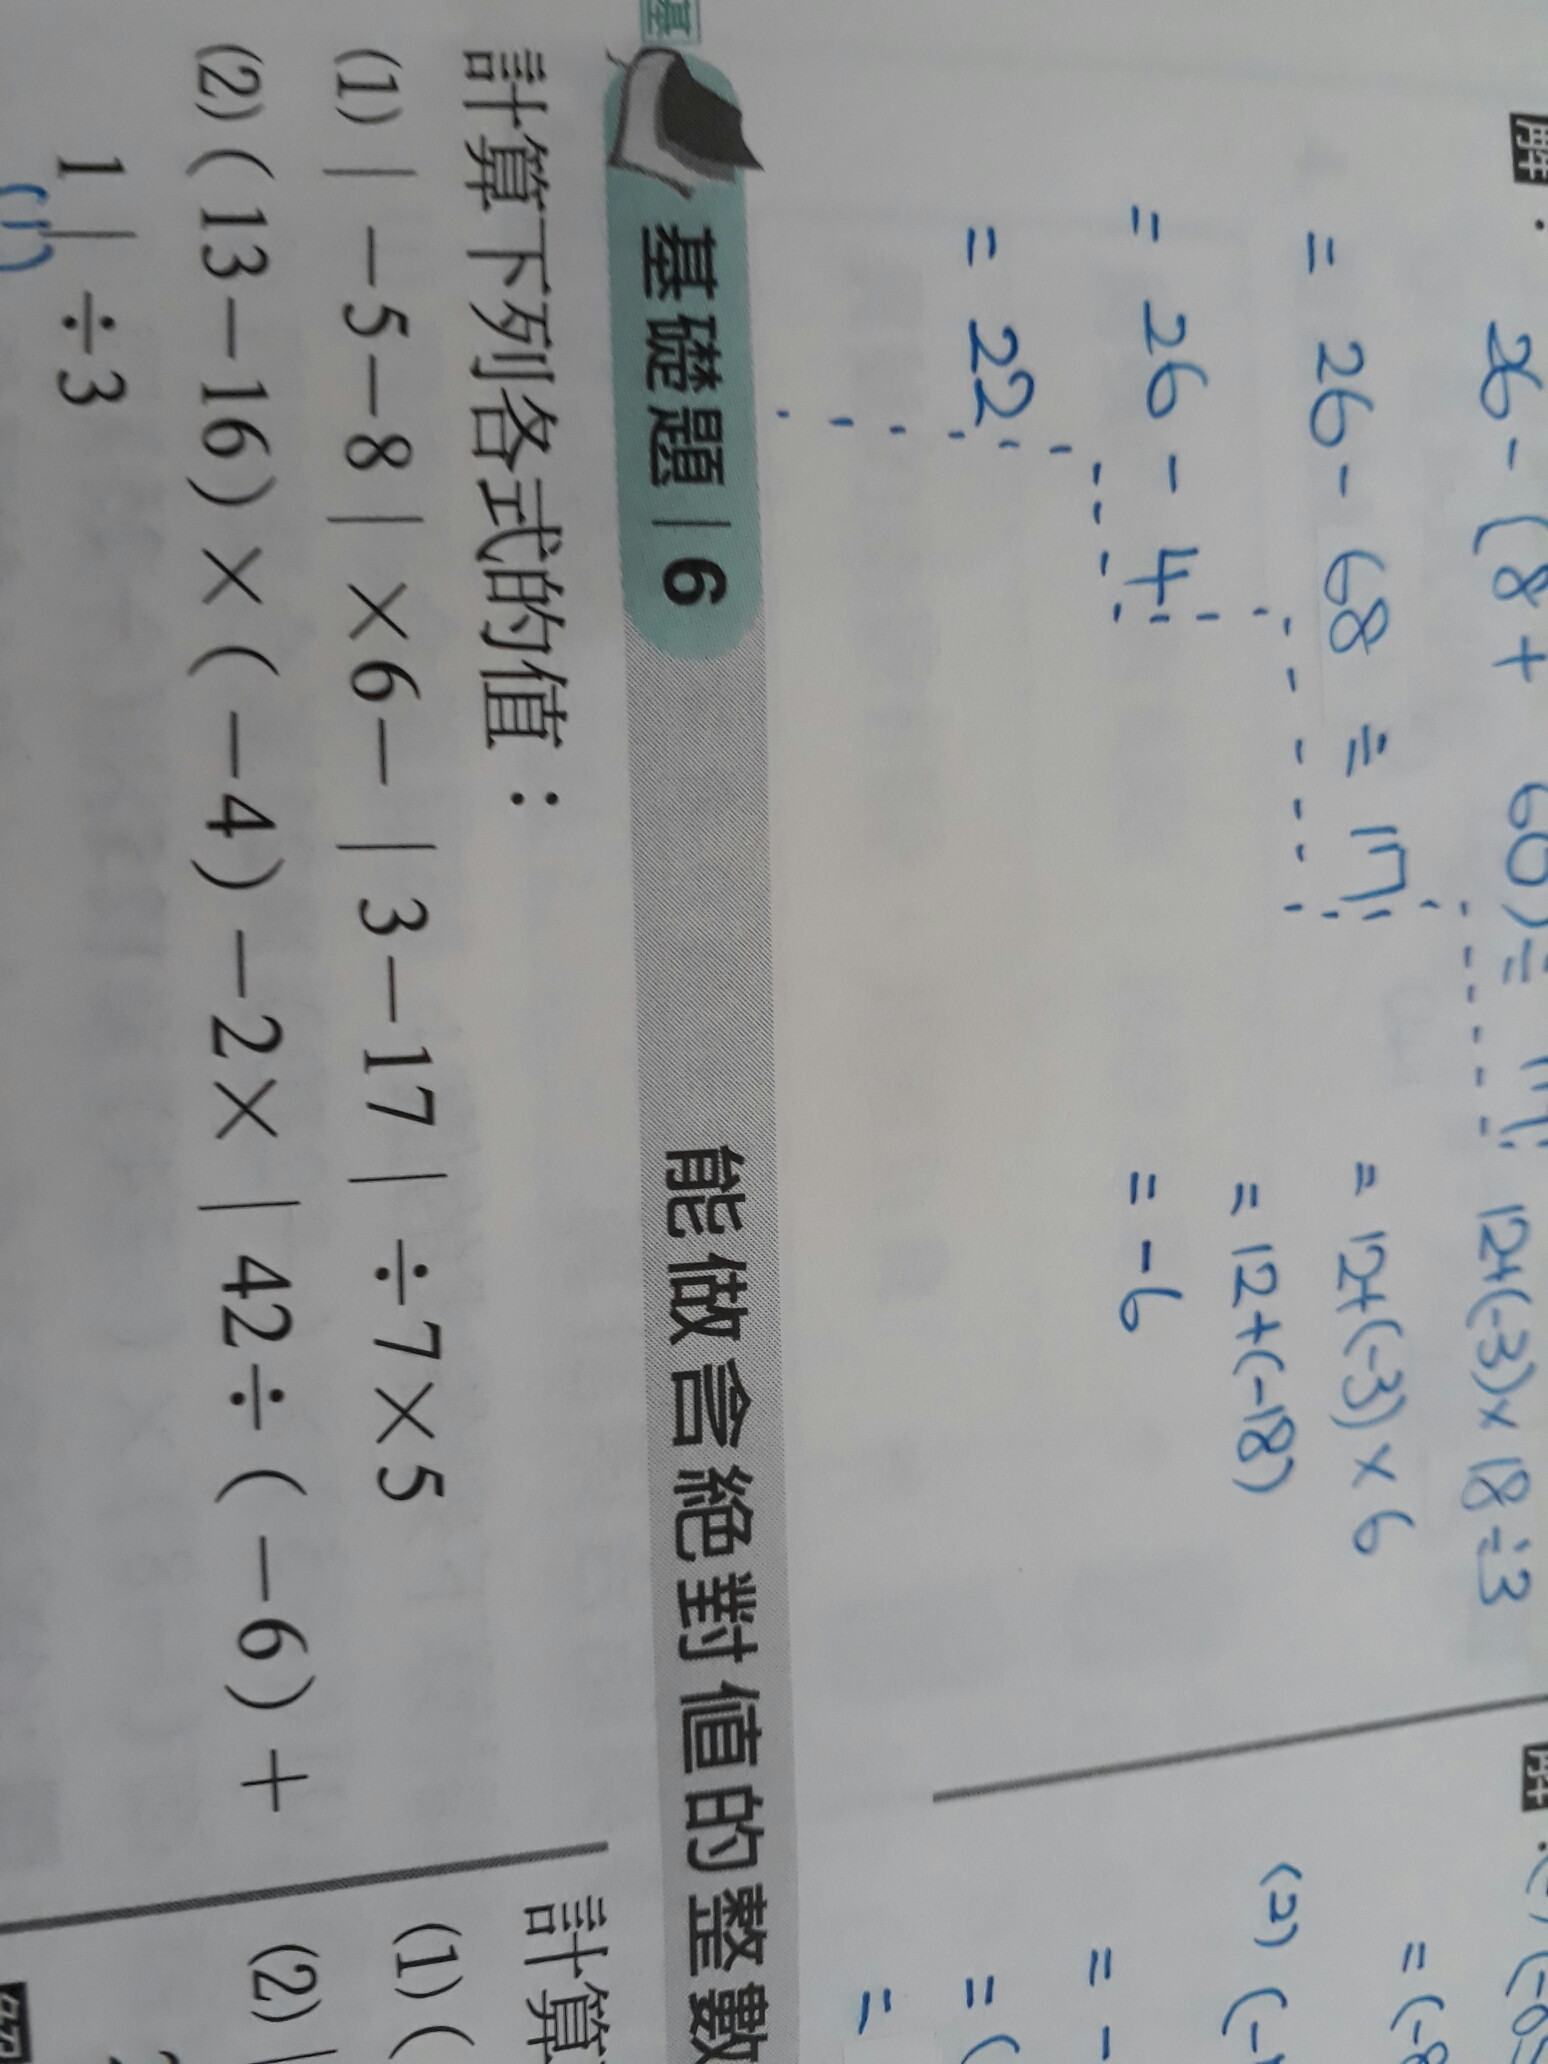 解:
26-(8+60)÷17
=26-68÷17
=26-4
=22
12+(-3)×18÷3
=12+(-3)×6
=12+(-18)
=-6
解:
=(-8
(2)(-1
=-
=(
=
基
基礎題|6 能做含絕對值的整數
計算下列各式的值：
(1)|-5-8|×6-|3-17|÷7×5
(2)(13-16)×(-4)-2×|42÷(-6)+
1|÷3
(1)
計算
(1)(
(2)|